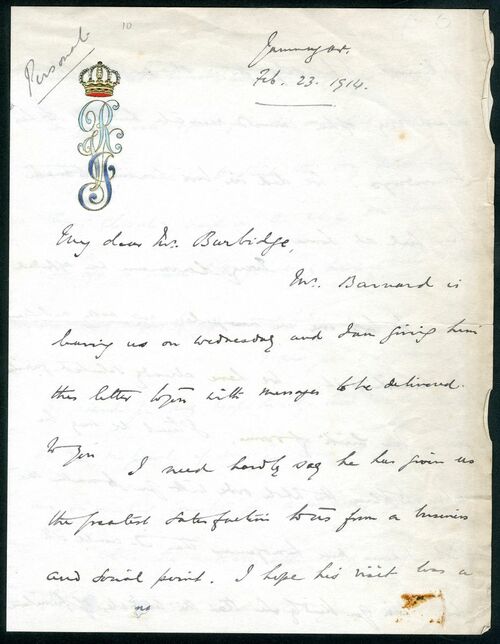 Personal
10
Jamnagar.
Feb. 23. 1914.
RS
My dear Mr. Burbidge,
Mr. Barnard is
leaving us on wednesday and I am giving him
this letter to you with messages to be delivered.
to you I need hardly say he has given us
the greatest satisfaction to us from a business
and social point. I hope his visit has a
no